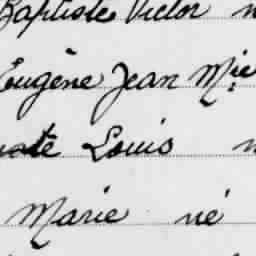 Baptiste Victor n
Eugène Jean Mie
Louis n
Marie né